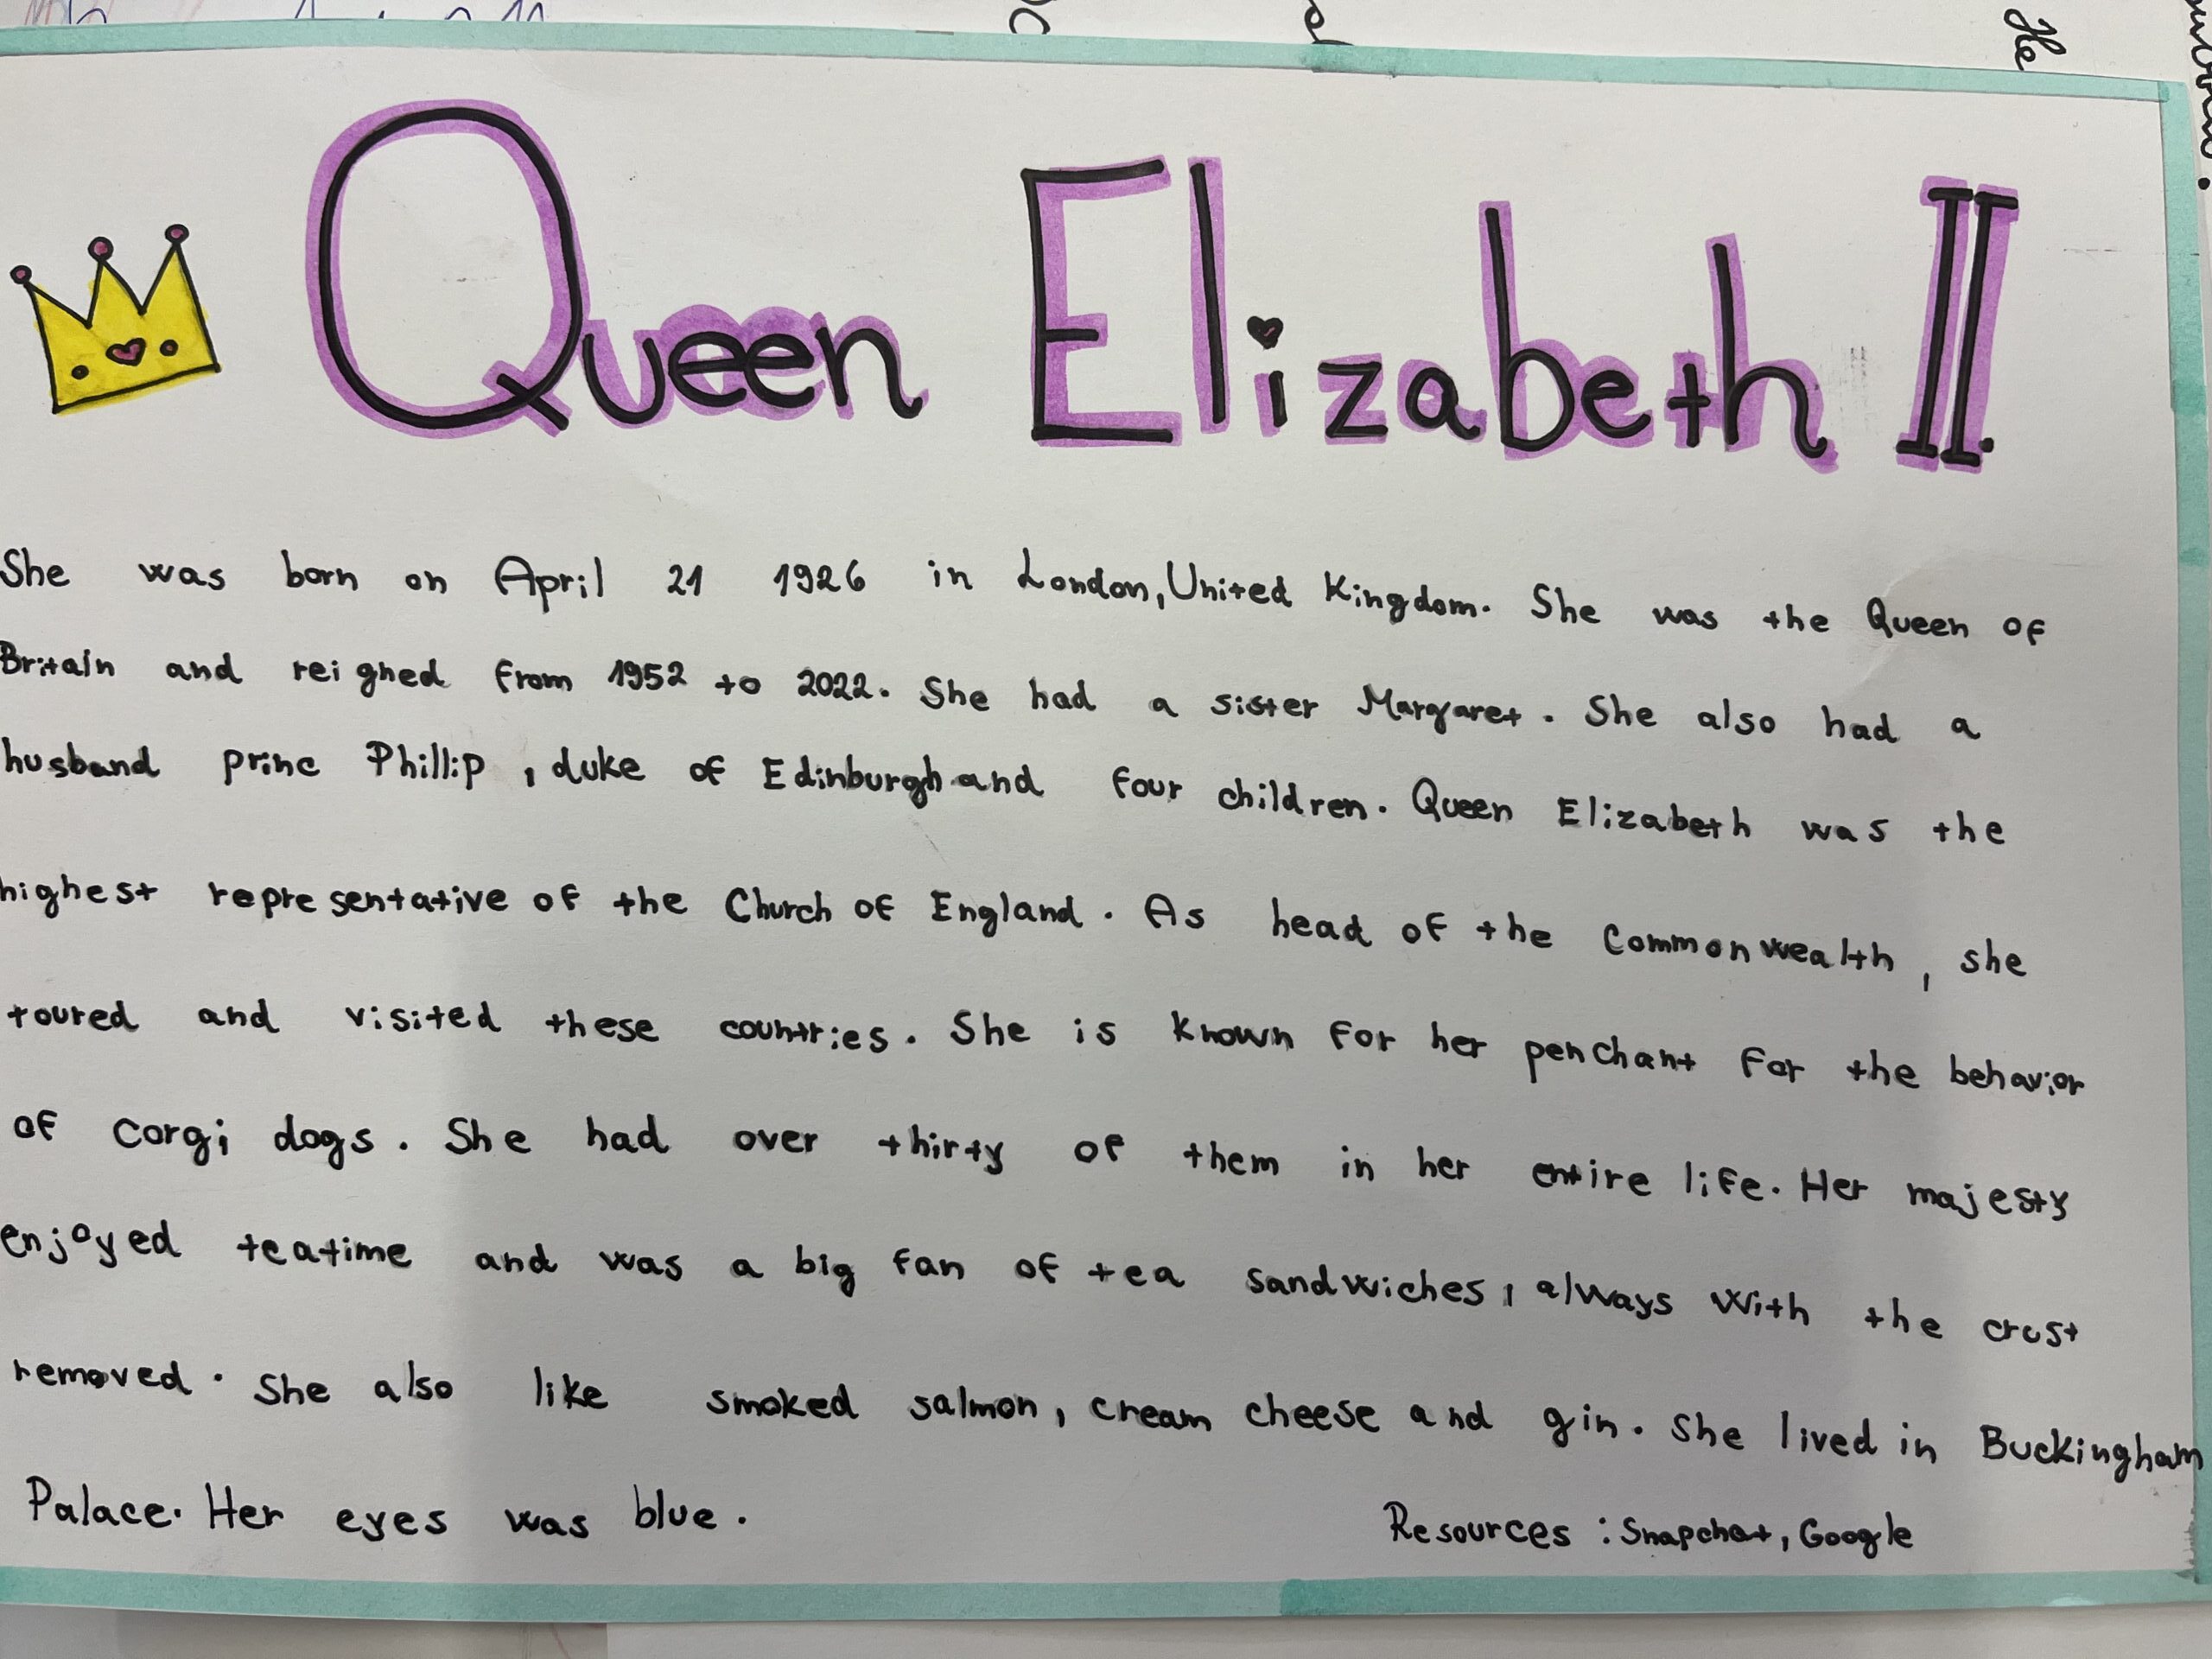 He
Queen Elizabeth II.
She was born on April 21 1926 in London, United Kingdom. She was the Queen of
Britain and reigned from 1952 to 2022. She had a sister Margaret. She also had a
husband princ Phillip, duke of Edinburgh and four children. Queen Elizabeth was the
highest representative of the Church of England. As head of the Commonwealth, she
toured and visited these countries. She is known for her penchant for the behavior
of corgi dogs. She had over thirty of them in her entire life. Her majesty
enjoyed teatime and was a big fan of tea sandwiches, always with the crust
removed. She also like smoked salmon, cream cheese and gin. She lived in Buckingham
Palace. Her eyes was blue.
Resources : Snapchat, Google